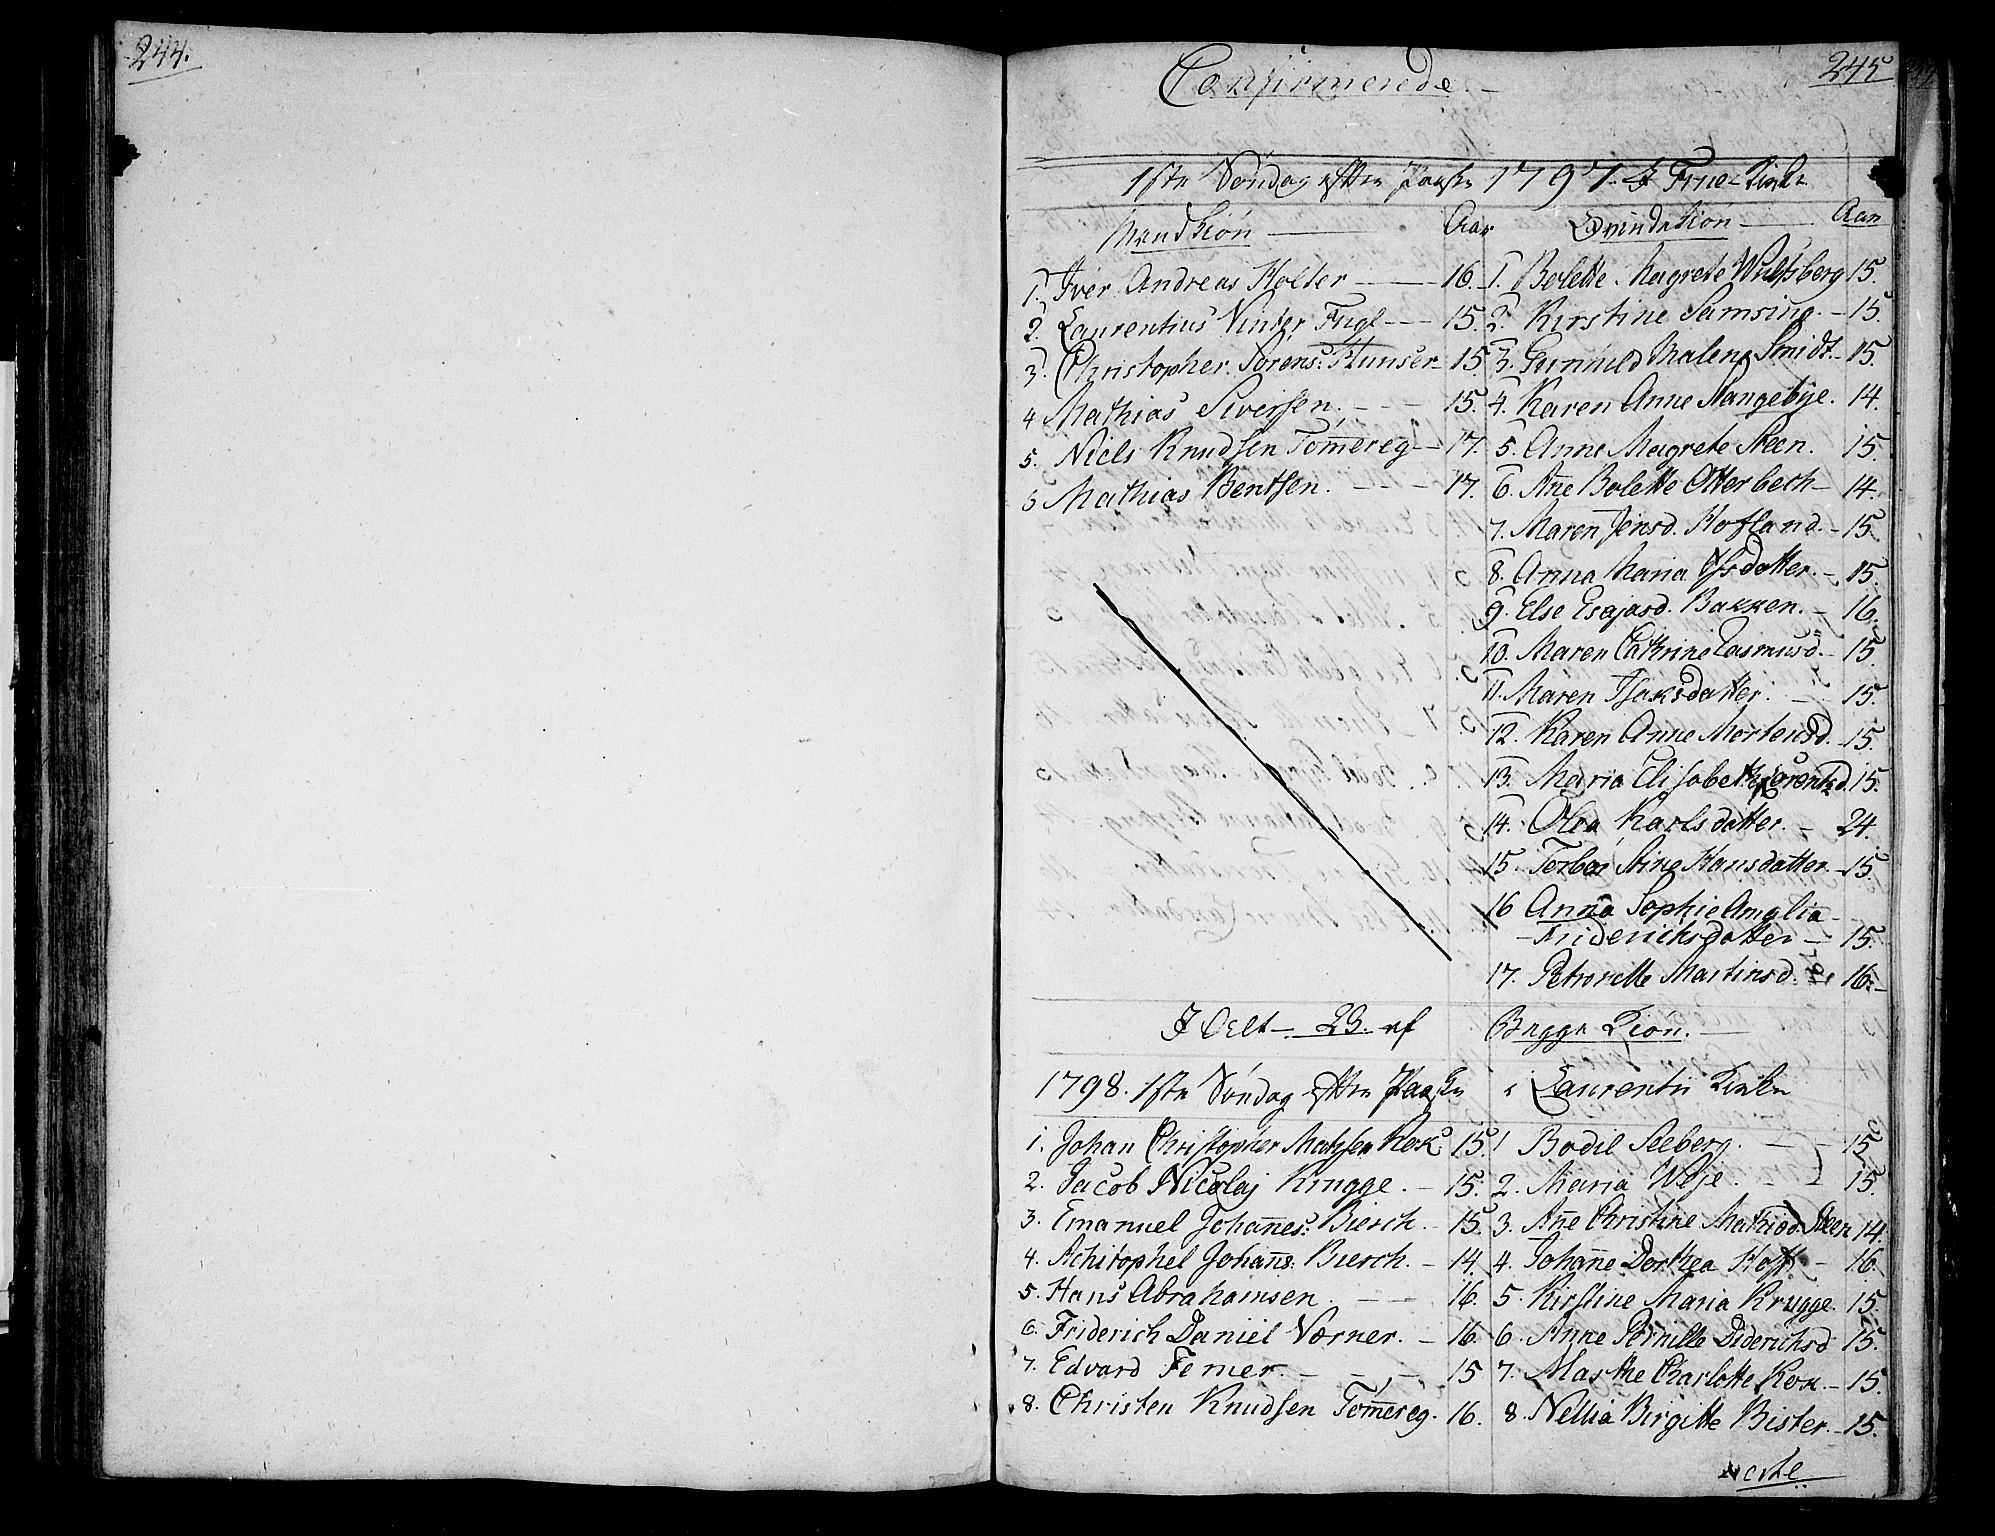 244.
245
Confirmerede
1ste Søndag efter Paaske 1797. I Frue-Kirke
Mandkiøn Aar Qvindekiøn Aar
1. Iver Andreas Holter 16. 1. Bolette Magrete Wulfsberg 15.
2. Laurentius Vinter Fugl 15. 2. Kirstine Samsing. 15.
3. Christopher Sørens: Hunser 15. 3. Gunnild Malene Smidt 15.
4 Mathias Siversen. 15. 4. Karen Anne Nangebye. 14.
5. Niels Knudsen Tømereg 17. 5. Anne Magrete Steen. 15.
6 Mathias Bentsen. 17. 6. Ane Bolette Otterbech 14.
7. Maren Jensd. Hofland. 15.
8. Anna Maria Ifsdatter. 15.
9. Else Esajasd. Bakken. 16.
10. Maren Cathrine Rasmusd. 15.
11. Maren Isaksdatter. 15.
12. Karen Anne Mortensd. 15.
13. Maria Elisabeth Lorentzd. 15.
14. Olea Karlsdatter. 24.
15. Torbor Stine Hansdatter. 15.
16 Anna Sophie Amalia
Fridericksdatter 15.
17. Petronelle Martinsd. 16.
I Alt 23. af Begge Kiøn.
1798. 1ste Søndag efter Paaske i Laurentii Kirke
1. Johan Christopher Mathsen Kok 15. 1 Bodil Seeberg. 15
2. Jacob Nicolaj Krugge. 15. 2. Maria Weje. 15.
3. Emanuel Johannes: Bierch. 15. 3. Ane Christine Mathiasd. Steen 14.
4. Achitophel Johans: Bierch. 14. 4. Johanne Dorthea Hoff 16.
5. Hans Abrahamsen. 16. 5. Kirstine Maria Krugge. 15.
6. Friderich Daniel Værner. 16. 6. Anne Pernille Diderichsd 15.
7. Edvard Femer. 15 7. Marthe Charlotte Kok 15.
8. Christen Knudsen Tømereg. 16. 8. Nellia Birgitte Bister. 15.
verte